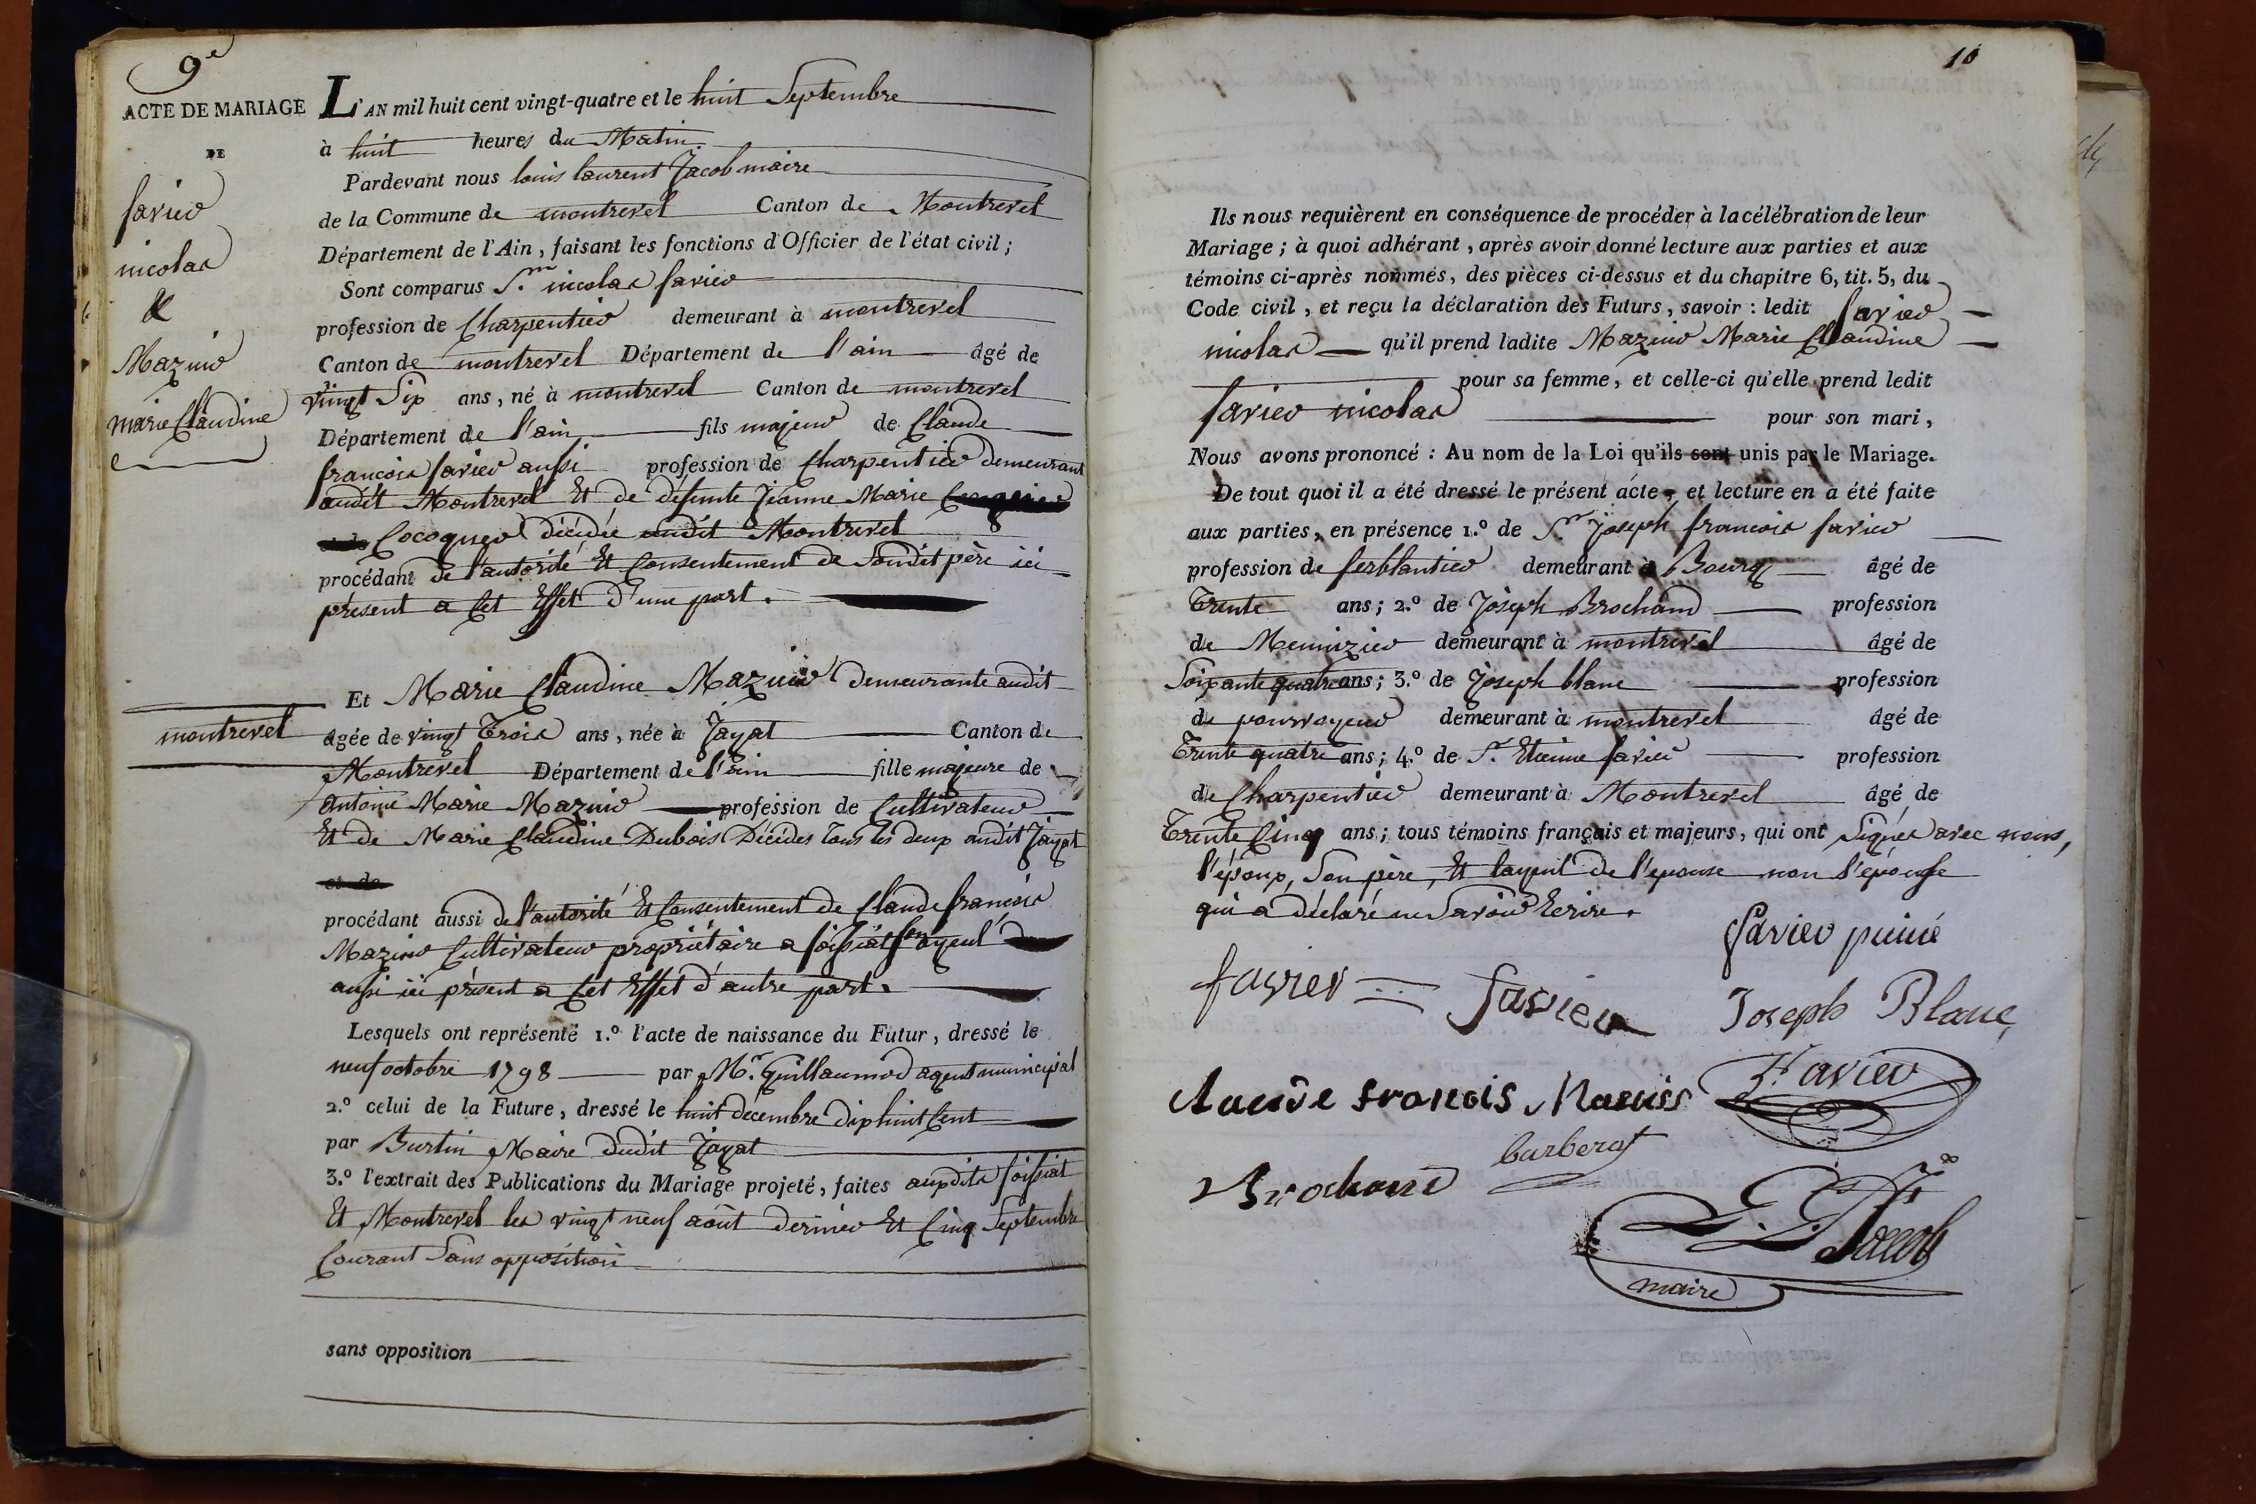 9e
ACTE DE MARIAGE
DE
favier
nicolas
&
Mazuir
marie Claudine
L'AN mil huit cent vingt-quatre et le huit Septembre
à huit heures du Matin
Pardevant nous louis laurent Jacob maire
de la Commune de montrevel Canton de Montrevel
Département de l'Ain, faisant les fonctions d'Officier de l'état civil;
Sont comparus Sr. nicolas favier
profession de Charpentier demeurant à montrevel
Canton de montrevel Département de l'ain âgé de
vingt Six ans, né à montrevel Canton de montrevel
Département de l'ain fils majeur de Claude
francois favier aussi profession de Charpentier demeurant
audit Montrevel Et de defunte Jeanne Marie
Cocogner décédée audit Montrevel
procédant de l'autorité Et Consentement de Sondit père ici
présent a Cet Effet d'une part.
Et Marie Claudine Mazuir demeurante audit
montrevel
âgée de vingt Trois ans, née à Jayat Canton de
Montrevel Département de l'ain fille majeure de
antoine Marie Mazuir profession de Cultivateur
Et de Marie Claudine Dubois Décédés tous les deux audit Jayat
et de
procédant aussi de l'autorité Et Consentement de Claude francois
Mazuir Cultivateur propriétaire a foissiat son ayeul
aussi ici présent a Cet Effet d'autre part.
Lesquels ont représenté 1.º l'acte de naissance du Futur, dressé le
neuf octobre 1798 par Mr. Guillaumod agent municipal
2.º celui de la Future, dressé le huit decembre dix huit Cent
par Burtin Maire dudit Jayat
3.º l'extrait des Publications du Mariage projeté, faites auxdits foissiat
Et Montrevel les vingt neuf août dernier Et Cinq Septembre
Courant Sans opposition
sans opposition
10
Ils nous requièrent en conséquence de procéder à la célébration de leur
Mariage; à quoi adhérant, après avoir donné lecture aux parties et aux
témoins ci-après nommés, des pièces ci-dessus et du chapitre 6, tit. 5, du
Code civil, et reçu la déclaration des Futurs, savoir: ledit favier
nicolas qu'il prend ladite Mazuir Marie Claudine
pour sa femme, et celle-ci qu'elle prend ledit
favier nicolas pour son mari,
Nous avons prononcé: Au nom de la Loi qu'ils sont unis par le Mariage.
De tout quoi il a été dressé le présent acte, et lecture en a été faite
aux parties, en présence 1.º de Sr. Joseph francois favier
profession de ferblantier demeurant à Bourg âgé de
Trente ans; 2.º de Joseph Brochand profession
de Menuizier demeurant à montrevel âgé de
Soixante quatre ans; 3.º de Joseph blanc profession
de pourvoyeur demeurant à montrevel âgé de
Trente quatre ans; 4.º de Sr. Etienne favier profession
de Charpentier demeurant à Montrevel âgé de
Trente Cinq ans; tous témoins français et majeurs, qui ont Signés avec nous,
l'époux, Son père, Et layeul de l'epouse non l'épouse
qui a déclaré ne Savoir Ecrire.
favier puiné
favrier
favier
Joseph Blanc
Claude francois Mazuis
favier
barberat
Brochand
L. L. Jacob
maire